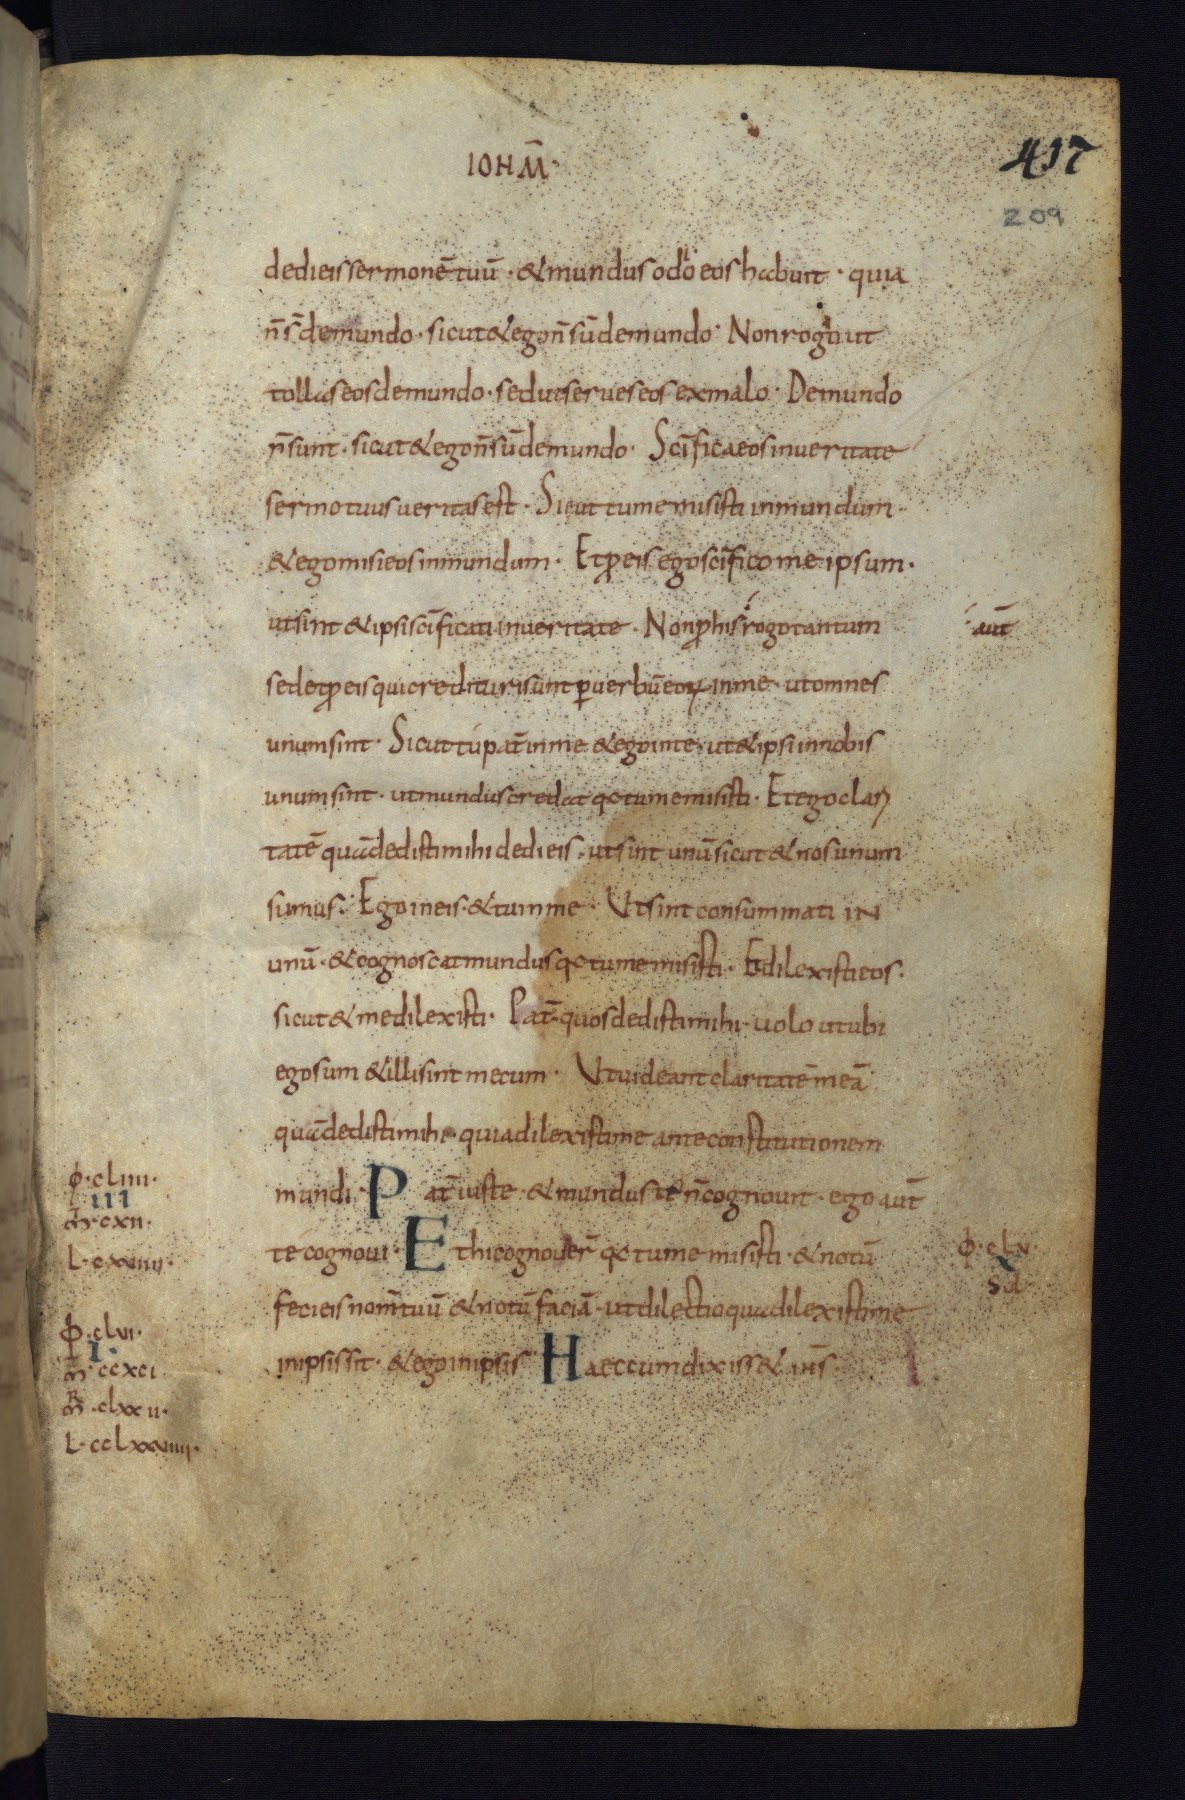 IOHM̄·
417
209
dedi eis sermonē tuū · & mundus odō eos habuit · quia
n̄ s̄ de mundo · sicut & ego n̄ sū de mundo · Non rogo ut
tollas eos de mundo · sed ut serues eos ex malo · De mundo
n̄ sunt · sicut & ego n̄ sū de mundo · Sc̄ifica eos in ueritate
sermo tuus ueritas est · Sicut tu me misisti in mundum ·
& ego misi eos in mundum · Et ꝓ eis ego sc̄ifico me ipsum ·
ut sint & ipsi sc̄ificati in ueritate · Non ꝓ his rogo tantum
aut̄
sed et ꝓ eis qui credituri sunt ꝑ uerbū eoꝝ in me · ut omnes
unum sint · Sicut tu pat̄ in me & ego in te · ut & ipsi in nobis
unum sint · ut mundus credat qđ tu me misisti · Et ego clari
tatē quā dedisti mihi dedi eis · ut sint unū sicut & nos unum
sumus · Ego in eis · & tu in me · Ut sint consummati IN
unū · & cognoscat mundus qđ tu me misisti · Et dilexisti eos ·
sicut & me dilexisti · Pat̄ quos dedisti mihi · uolo ut ubi
ego sum & illi sint mecum · Ut uideant claritatē meā
quā dedisti mihi · quia dilexisti me ante constitutionem
mundi · Pat̄ iuste · & mundus te n̄ cognouit · ego aut̄
te cognoui · Et hi cognouer̄ qđ tu me misisti · & notū
feci eis nom̄ tuū & notū faciā · ut dilectio qua dilexisti me
in ipsis sit · & ego in ipsis Haec cum dixiss& ih̄s ·
ϕ · cliiii ·
III
m̄ · cxii ·
L · cxviiii ·
ϕ · clv ·
X
Sol
ϕ · clvi ·
I ·
m̄ · ccxci
m̄R · clxxii ·
L · cclxxviiii ·